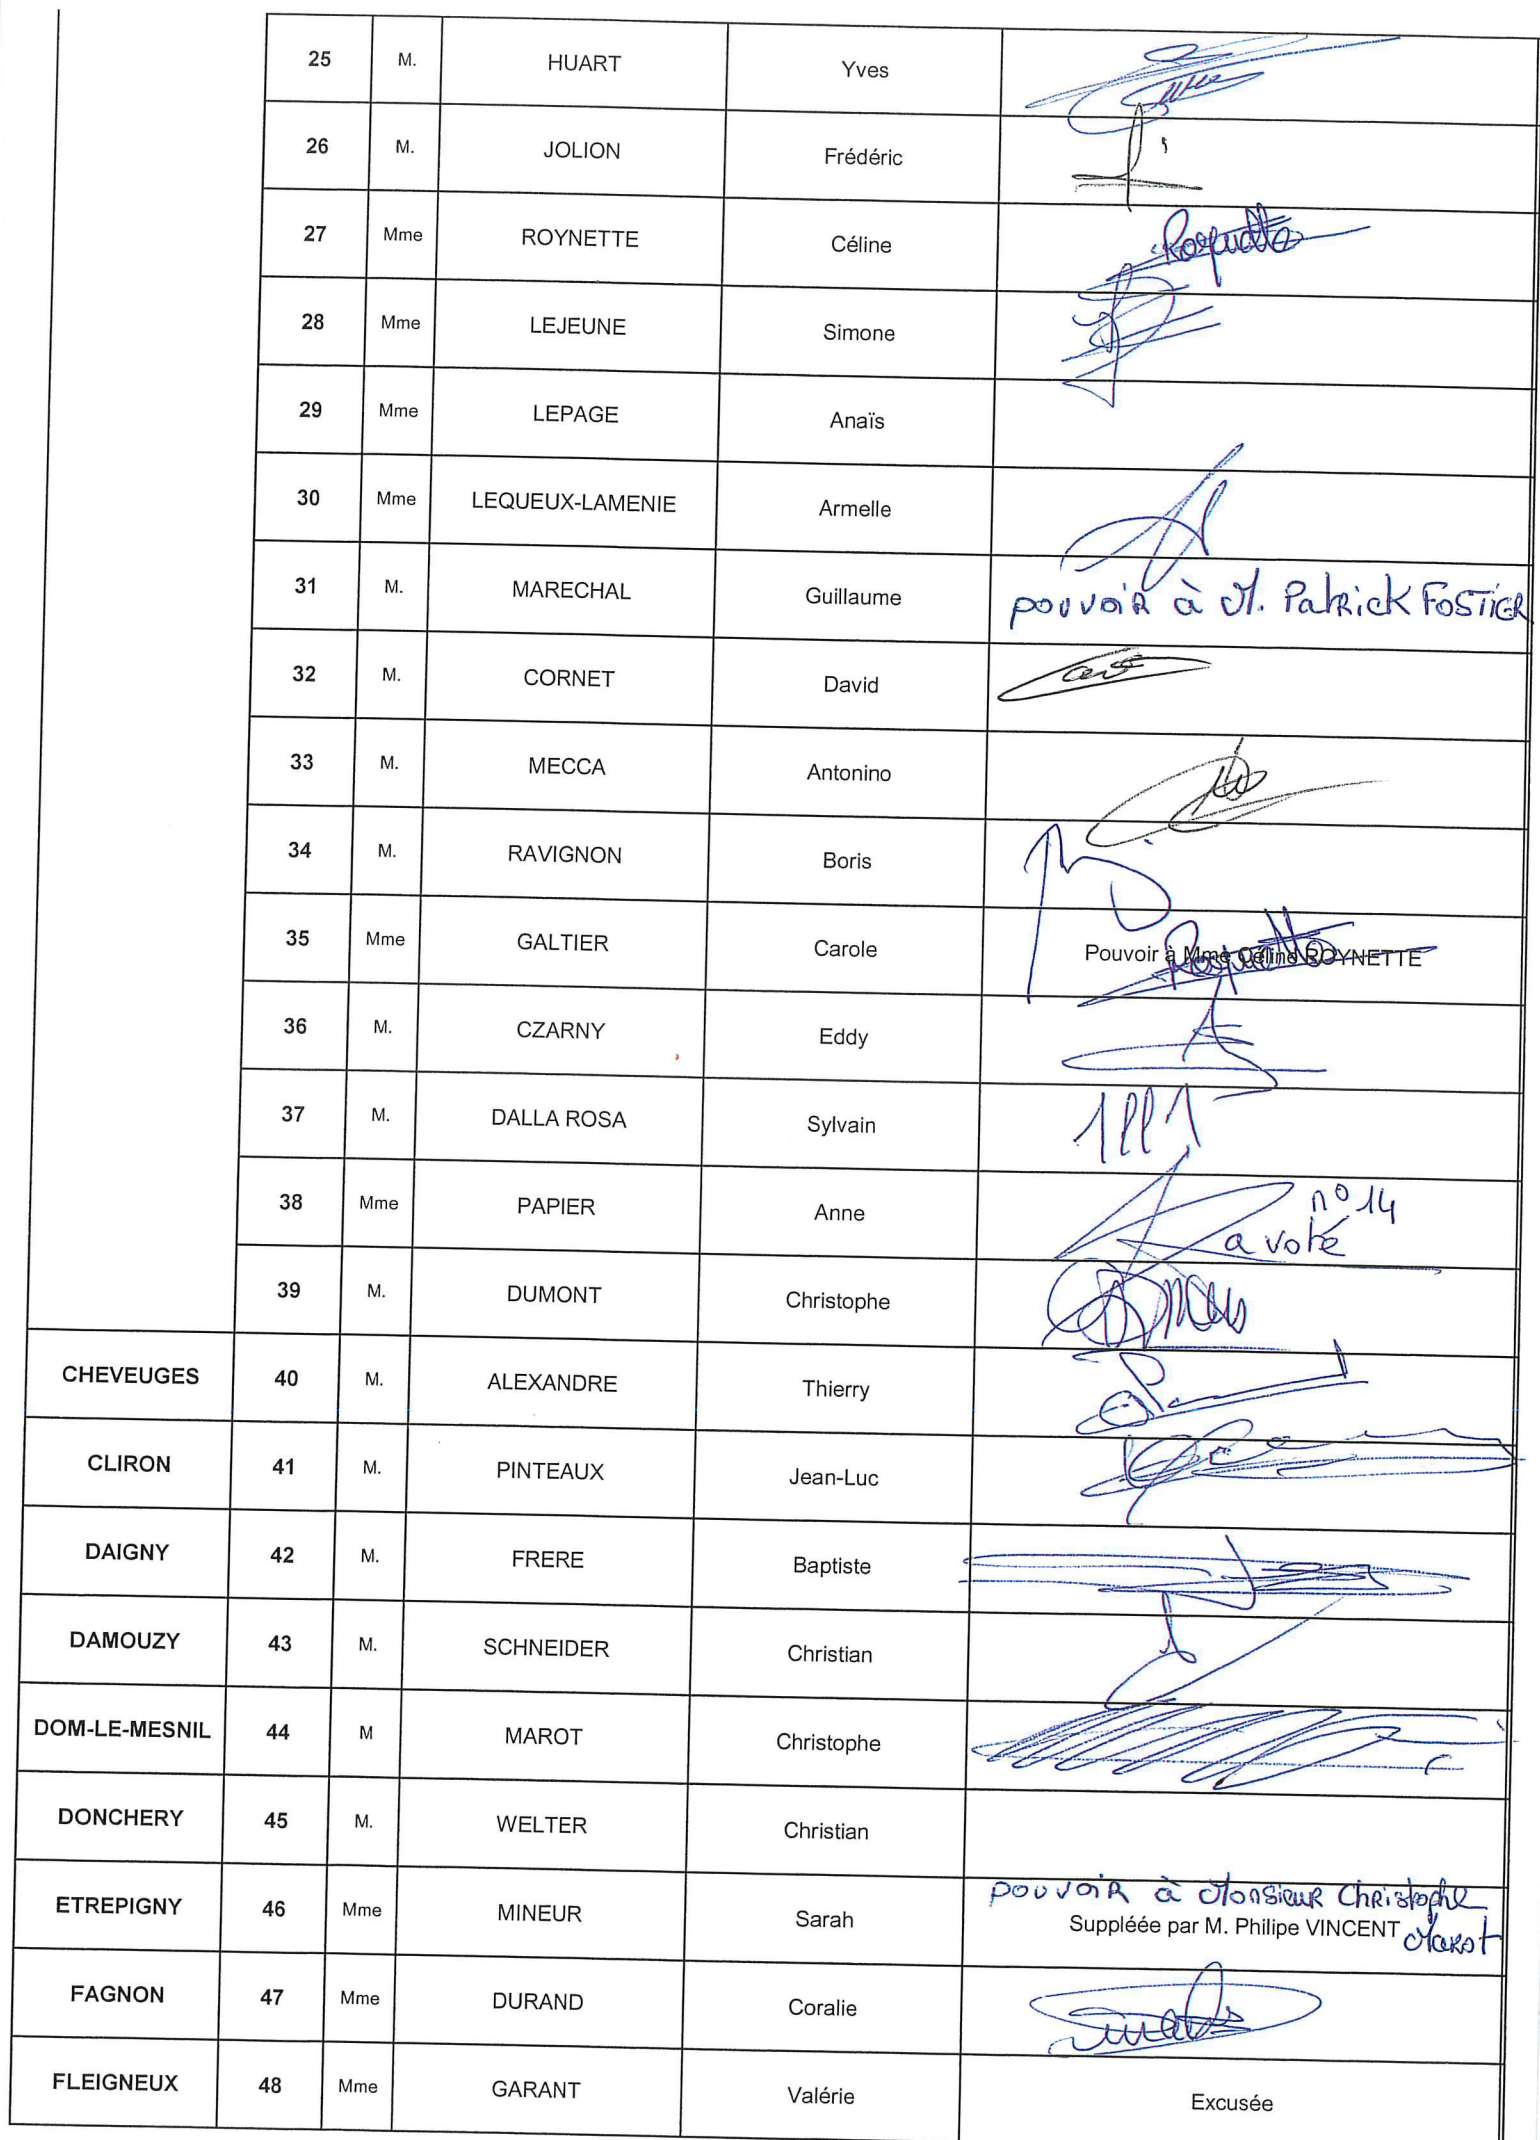 25 M. HUART Yves
26 M. JOLION Frédéric
27 Mme ROYNETTE Céline
28 Mme LEJEUNE Simone
29 Mme LEPAGE Anaïs
30 Mme LEQUEUX-LAMENIE Armelle
31 M. MARECHAL Guillaume pouvoir à M. Patrick FOSTIER
32 M. CORNET David
33 M. MECCA Antonino
34 M. RAVIGNON Boris
35 Mme GALTIER Carole Pouvoir à Mme Céline ROYNETTE
36 M. CZARNY Eddy
37 M. DALLA ROSA Sylvain
38 Mme PAPIER Anne n° 14
a voté
39 M. DUMONT Christophe
CHEVEUGES 40 M. ALEXANDRE Thierry
CLIRON 41 M. PINTEAUX Jean-Luc
DAIGNY 42 M. FRERE Baptiste
DAMOUZY 43 M. SCHNEIDER Christian
DOM-LE-MESNIL 44 M MAROT Christophe
DONCHERY 45 M. WELTER Christian
pouvoir à Monsieur Christophe Marot
ETREPIGNY 46 Mme MINEUR Sarah Suppléée par M. Philipe VINCENT
FAGNON 47 Mme DURAND Coralie
FLEIGNEUX 48 Mme GARANT Valérie Excusée